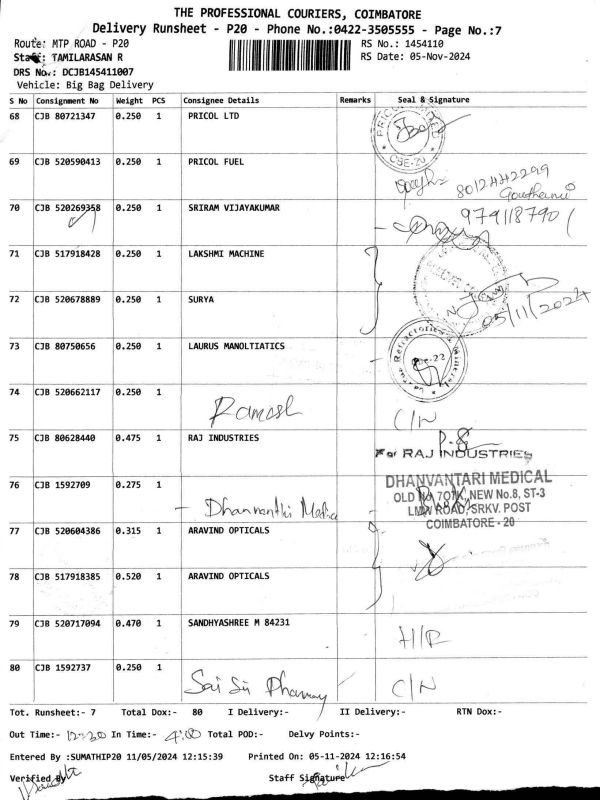 THE PROFESSIONAL COURIERS, COIMBATORE
Delivery Runsheet - P20 - Phone No.:0422-3505555 - Page No.:7
Route: MTP ROAD - P20 RS No.: 1454110
Staff: TAMILARASAN R RS Date: 05-Nov-2024
DRS No.: DCJB145411007
Vehicle: Big Bag Delivery
S No Consignment No Weight PCS Consignee Details Remarks Seal & Signature
68 CJB 80721347 0.250 1 PRICOL LTD
CBE-20
69 CJB 520590413 0.250 1 PRICOL FUEL
8012442299
70 CJB 520269358 0.250 1 SRIRAM VIJAYAKUMAR
71 CJB 517918428 0.250 1 LAKSHMI MACHINE
72 CJB 520678889 0.250 1 SURYA
05/11/2024
73 CJB 80750656 0.250 1 LAURUS MANOLTIATICS
74 CJB 520662117 0.250 1 Ramesh C/N
75 CJB 80628440 0.475 1 RAJ INDUSTRIES
For RAJ INDUSTRIES
76 CJB 1592709 0.275 1
DHANVANTARI MEDICAL
OLD No 707K, NEW No.8, ST-3
LMW ROAD, SRKV. POST
COIMBATORE - 20
77 CJB 520604386 0.315 1 ARAVIND OPTICALS
78 CJB 517918385 0.520 1 ARAVIND OPTICALS
79 CJB 520717094 0.470 1 SANDHYASHREE M 84231
80 CJB 1592737 0.250 1 C/N
Tot. Runsheet:- 7 Total Dox:- 80 I Delivery:- II Delivery:- RTN Dox:-
Out Time:- 12-30 In Time:- 4:00 Total POD:- Delvy Points:-
Entered By :SUMATHIP20 11/05/2024 12:15:39 Printed On: 05-11-2024 12:16:54
Verified By Staff Signature